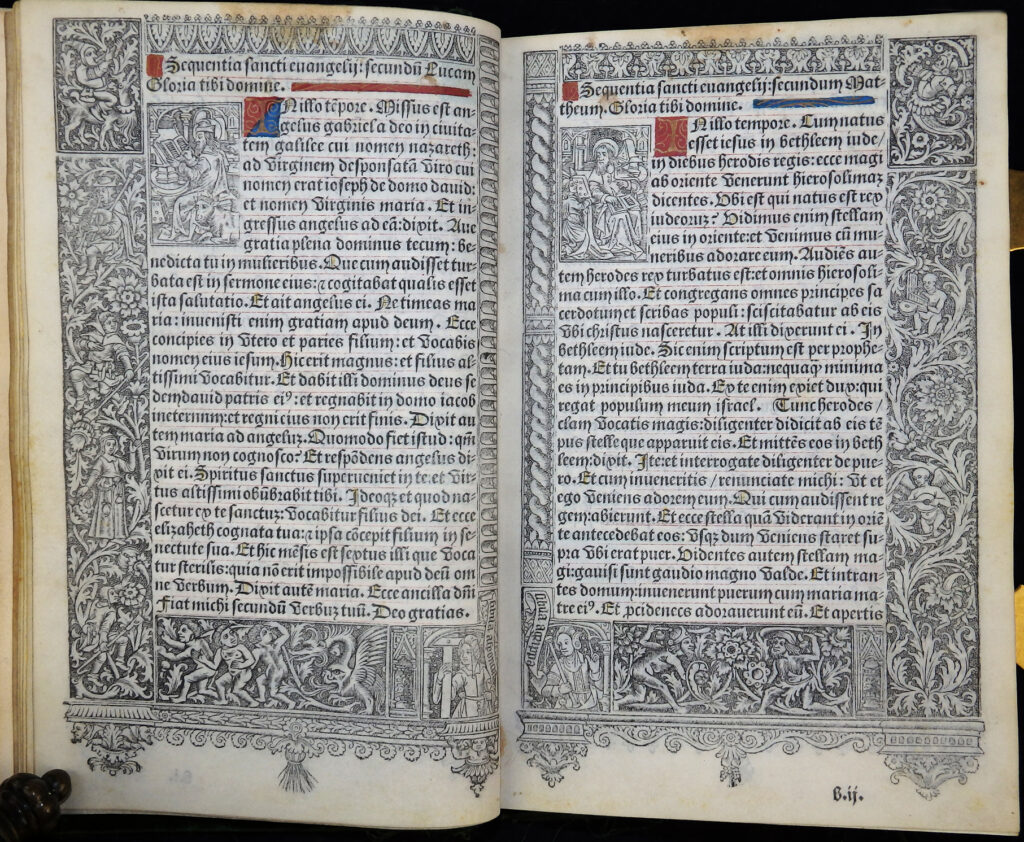 Sequentia sancti euangelij: secundū Lucam
Gloria tibi domine.
IN illo tēpore. Missus est an-
gelus gabriel a deo in ciuita-
tem galilee cui nomen nazareth:
ad virginem desponsatā viro cui
nomen erat ioseph de domo dauid:
et nomen virginis maria. Et in-
gressus angelus ad eā: dixit. Aue
gratia plena dominus tecum: be-
nedicta tu in mulieribus. Que cum audisset tur-
bata est in sermone eius: ⁊ cogitabat qualis esset
ista salutatio. Et ait angelus ei. Ne timeas ma
ria: inuenisti enim gratiam apud deum. Ecce
concipies in vtero et paries filium: et vocabis
nomen eius iesum. Hic erit magnus: et filius al-
tissimi vocabitur. Et dabit illi dominus deus se
dem dauid patris eiꝰ: et regnabit in domo iacob
in eternum: et regni eius non erit finis. Dixit au
tem maria ad angeluz. Quomodo fiet istud: qm̄
virum non cognosco? Et respōdens angelus di
xit ei. Spiritus sanctus superueniet in te: et vir-
tus altissimi obūbrabit tibi. Ideoqz et quod na-
scetur ex te sanctuz: vocabitur filius dei. Et ecce
elizabeth cognata tua: ⁊ ipsa cōcepit filium in se-
nectute sua. Et hic mēsis est sextus illi que voca
tur sterilis: quia nō erit impossibile apud deū om
ne verbum. Dixit autē maria. Ecce ancilla dn̄i
Fiat michi secundū verbuz tuū. Deo gratias.
Sequentia sancti euangelij: secundum Mat-
theum. Gloria tibi domine.
IN illo tempore. Cum natus
esset iesus in bethleem iude/
in diebus herodis regis: ecce magi
ab oriente venerunt hierosolimaz
dicentes. Vbi est qui natus est rex
iudeoruz? Vidimus enim stellam
eius in oriente: et venimus cū mu-
neribus adorare eum. Audiēs au-
tem herodes rex turbatus est: et omnis hierosoli-
ma cum illo. Et congregans omnes principes sa
cerdotum et scribas populi: sciscitabatur ab eis
vbi christus nasceretur. At illi dixerunt ei. In
bethleem iude. Sic enim scriptum est per prophe-
tam. Et tu bethleem terra iuda: nequaqꝫ minima
es in principibus iuda. Ex te enim exiet dux: qui
regat populum meum israel. Tunc herodes/
clam vocatis magis: diligenter didicit ab eis tē-
pus stelle que apparuit eis. Et mittēs eos in beth
leem: dixit. Ite: et interrogate diligenter de pue-
ro. Et cum inueneritis / renunciate michi: vt et
ego veniens adorem eum. Qui cum audissent re
gem: abierunt. Et ecce stella quā viderant in oriē
te antecedebat eos: vsqz dum veniens staret su-
pra vbi erat puer. Videntes autem stellam ma-
gi: gauisi sunt gaudio magno valde. Et intran-
tes domum: inuenerunt puerum cum maria ma-
tre eiꝰ. Et ꝓcidentes adorauerunt eū. Et apertis
b.ij.